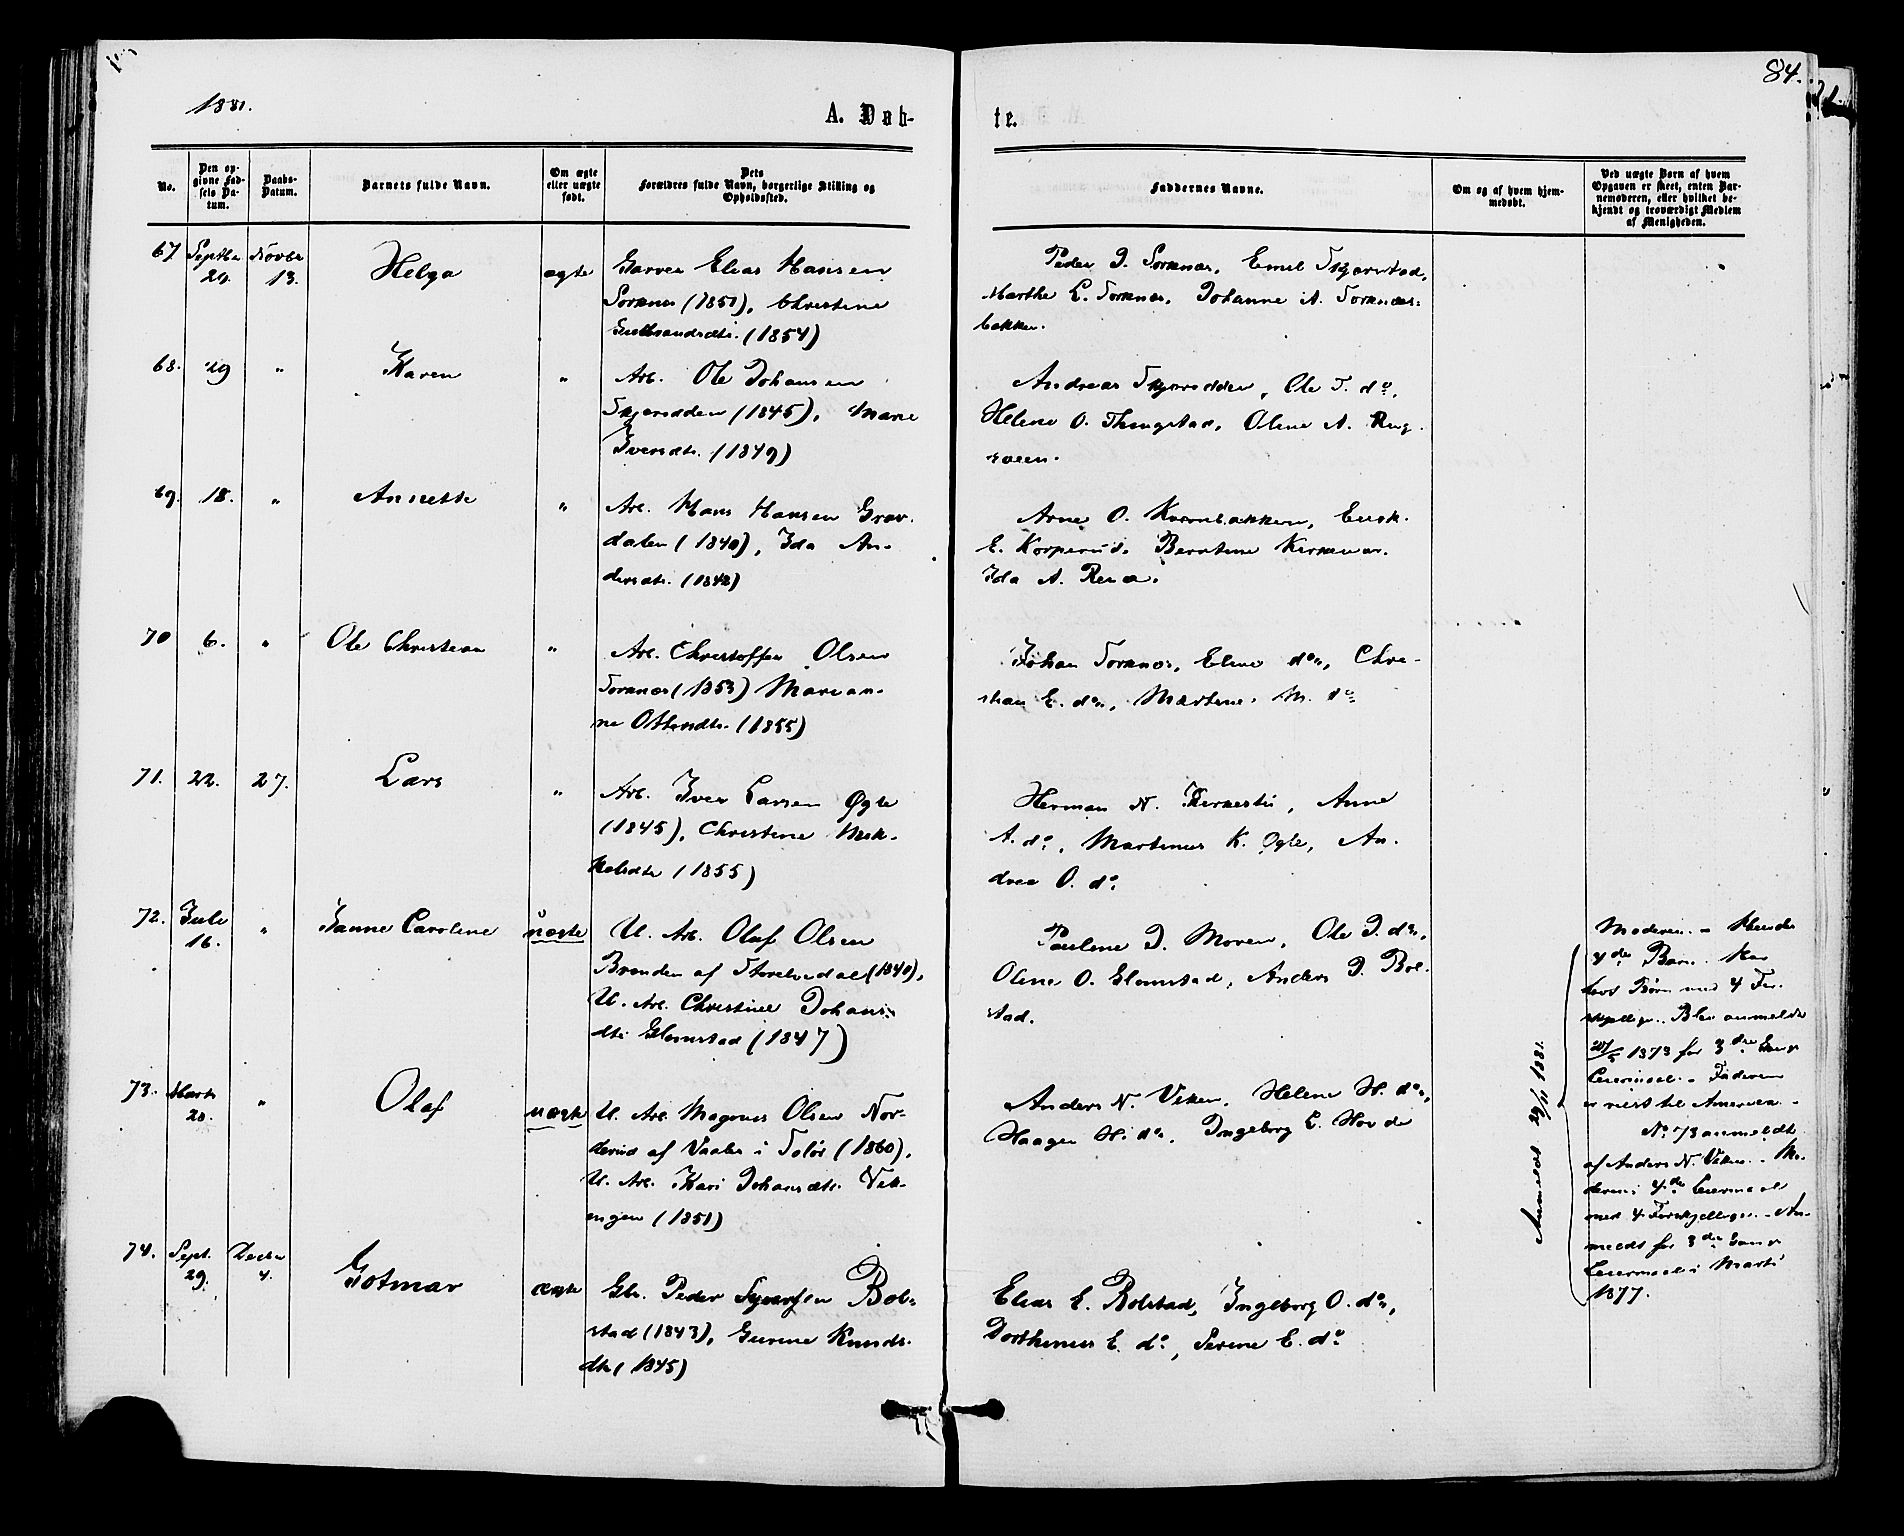 84.
1881.
A. Døb-
te.
No.
Den op-
givne Fød-
sels Da-
tum.
Daabs-
Datum.
Barnets fulde Navn.
Om ægte
eller uægte
født.
Dets
Forældres fulde Navn, borgerlige Stilling og
Opholdssted.
Faddernes Navne.
Om og af hvem hjem-
medøbt.
Ved uægte Børn af hvem
Opgaven er skeet, enten Bar-
nemoderen, eller hvilket be-
kjendt og troværdigt Medlem
af Menigheden.
67 Septbr 24. Novbr 13. Helga ægte
Garver Elias Hansen
Sorknes (1851), Christine
Gulbrandsdtr. (1854)
Peder D. Sorknes, Emil Skjærstad,
Marthe L. Sorknes, Johanne A. Sorknes-
bakken.
68. 29 " Karen "
Arb. Ole Johansen
Skjærodden (1845), Marie
Iversdtr. (1849)
Andreas Skjærodden, Ole T. do,
Helene O. Thingstad, Olene A. Rug-
sveen.
69. 18. " Annette "
Arb. Hans Hansen Grav-
dalen (1840), Ida An-
dersdtr. (1842)
Arne O. Kvernbakken,
E. Korperud. Berntine
Ida A. Rena.
70 6. " Ole Christian "
Arb. Christoffer Olsen
Sorknes (1853) Marian-
ne Ottersdtr. (1855)
Johan Sorknes, Eline do, Chri-
stian E. do, Martine M. do
71. 22. 27. Lars "
Arb. Iver Larsen Øgle
(1845), Christine Mik-
kelsdtr (1855)
Herman N. Kirkestu, Anne
A. do, Martinus K. Øgle, An-
drea O. do
72. Juli 16. " Janne Caroline uægte
U. Arb. Olaf Olsen
Brenden af Storelvedal (1840),
U. Arb. Christine Johans-
dtr. Glomstad (1847)
Pauline D. Moren, Ole D. do,
Olene O. Glomstad, Anders D. Bol-
stad.
Moderen. - Hendes
4de Barn. Har
havt Børn med 4 For-
skjellige. Blev anmeldt
1873 for 3die Gangs
Leiermaal. - Faderen
er reist til Amerika. -
73. Marts 20. " Olaf uægte
U. Arb. Magnus Olsen Nor-
derud af Vaaler i Solør (1860),
U. Arb. Kari Johansdtr. Vik-
engen (1851)
Anders N. Viken, Helene H. do,
Haagen H. do, Ingeborg E. Hovde
Anmeldt 29/11 1881.
No 73 anmeldt
af Anders N. Viken. - Mo-
derens 4de Leiermaal
med 4 Forskjellige. - An-
meldt for 3die Gangs
Leiermaal i Marts
1877.
74. Sept. 29. Decbr 4. Gotmar ægte
Gbr. Peder Syversen Bol-
stad (1843), Gurine Knuds-
dtr (1845)
Elias E. Bolstad, Ingeborg O. do,
Dorthinus E. do, Serine E. do